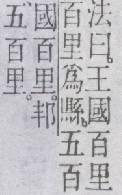 法曰。王國百里
百里爲縣。五百
國百里。邦
五百里。